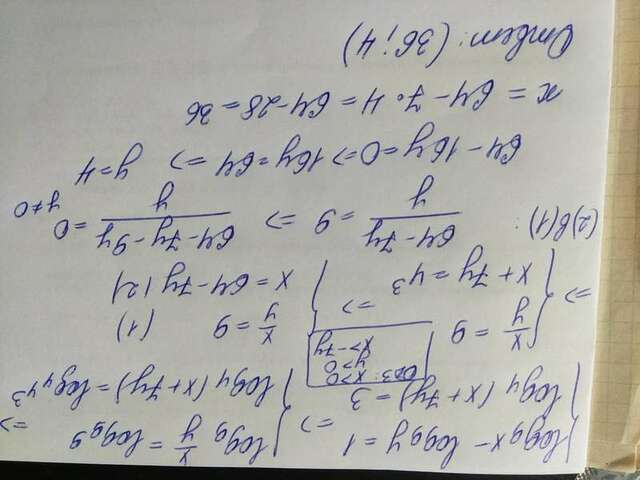 { log₉ x - log₉ y = 1 => { log₉ x/y = log₉ 9 =>
{ log₄ (x+7y) = 3 { log₄ (x+7y) = log₄ 4³
ОДЗ: x>0 y>0 x>-7y
=> { x/y = 9 => { x/y = 9 (1)
{ x+7y = 4³ { x = 64-7y (2)
(2) в (1): (64-7y)/y = 9 => (64-7y-9y)/y = 0 y≠0
64-16y=0 => 16y=64 => y=4
x = 64-7·4 = 64-28 = 36
Ответ: (36; 4)